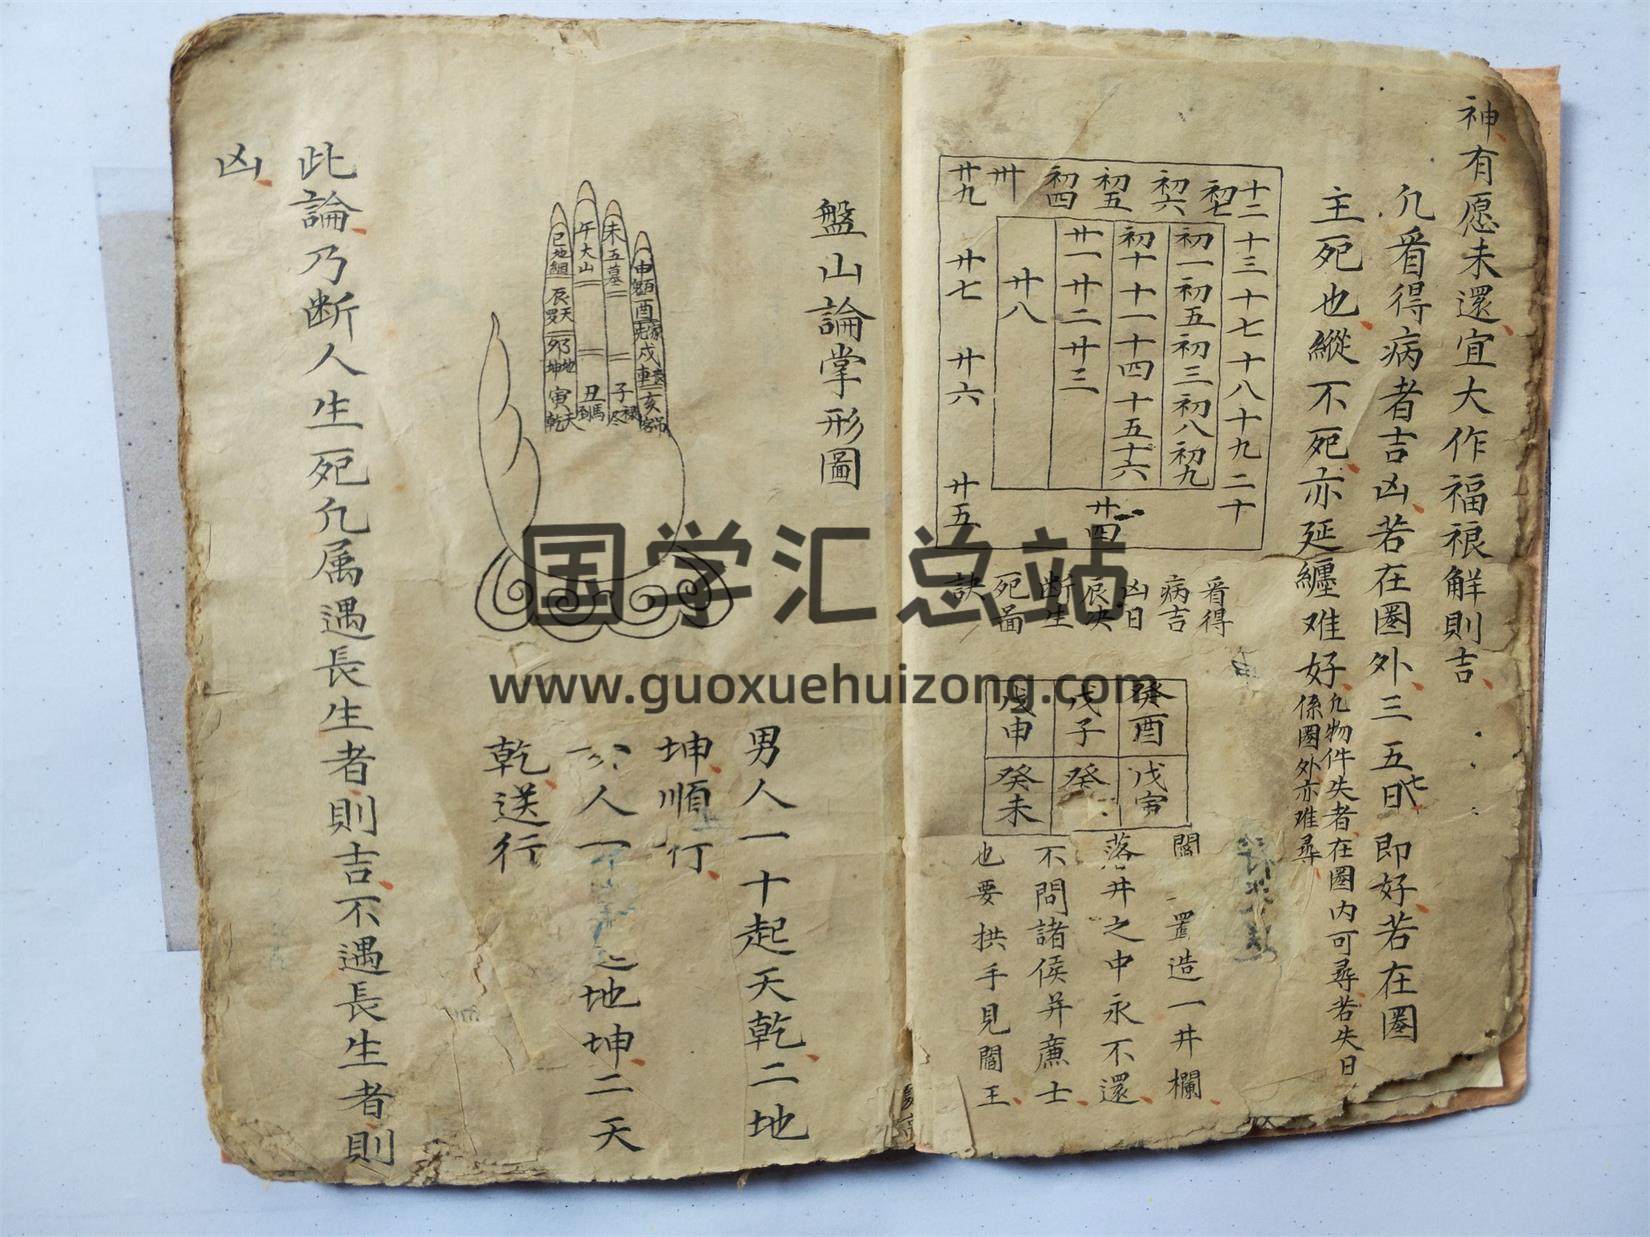 神有愿未還宜大作福祿解則吉
凢看得病者吉凶若在圈外三五七日即好若在圈
主死也縱不死亦延纏难好
凢物件失者在圈内可尋若失日
係圈外亦难尋
十二 十三 十七 十八 十九 二十
初七
初六
初五
初四
卅
廿九 廿七 廿六 廿五
初一 初五 初三 初八 初九
初十 十一 十四 十五 十六
廿一 廿二 廿三
廿八
廿四
看得
病吉
凶日
辰决
断生
死畐
訣
癸酉
戊子
戊申
戊寅
癸
癸未
置造一井欄
落井之中永不還
不問諸侯并㢘士
也要拱手見閻王
盤山論掌形圖
申
酉
戌
亥
未五墓
子
午大山
丑
巳地
辰天
卯地坤
寅天乾
男人一十起天乾二地
坤順行
人一
地坤二天
乾送行
此論乃断人生死凢属遇長生者則吉不遇長生者則
凶
国学汇总站
www.guoxuehuizong.com